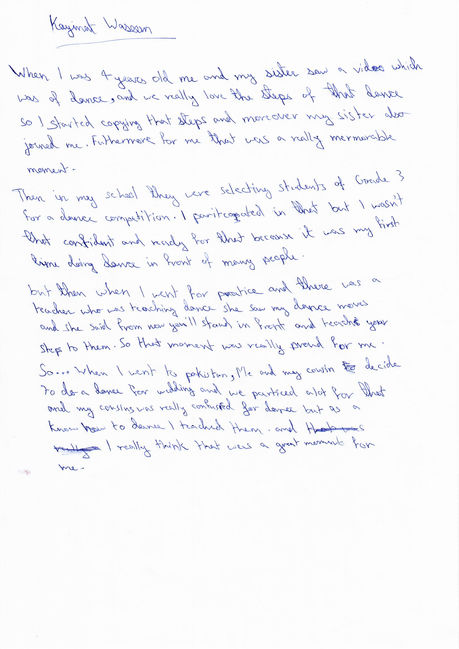 Kayinat Waseem
When I was 4 years old me and my sister saw a video which
was of dance, and we really love the steps of that dance
so I started copying that steps and moreover my sister also
joined me. Futhermore for me that was a really mermorable
moment.
Then in my school they were selecting students of Grade 3
for a dance compatition. I pariticepated in that but I wasn't
that confident and ready for that because it was my first
time doing dance in front of many people.
but then when I went for practice and there was a
teacher who was teaching dance she saw my dance moves
and she said from now you'll stand in front and teach your
steps to them. So that moment was really proud for me.
So... When I went to pakistan, Me and my cousin decide
To do a dance for wedding and we particed alot for that
and my cousins was really confused for dance but as a
know how to dance I teached them. and
I really think that was a great moment for
me.